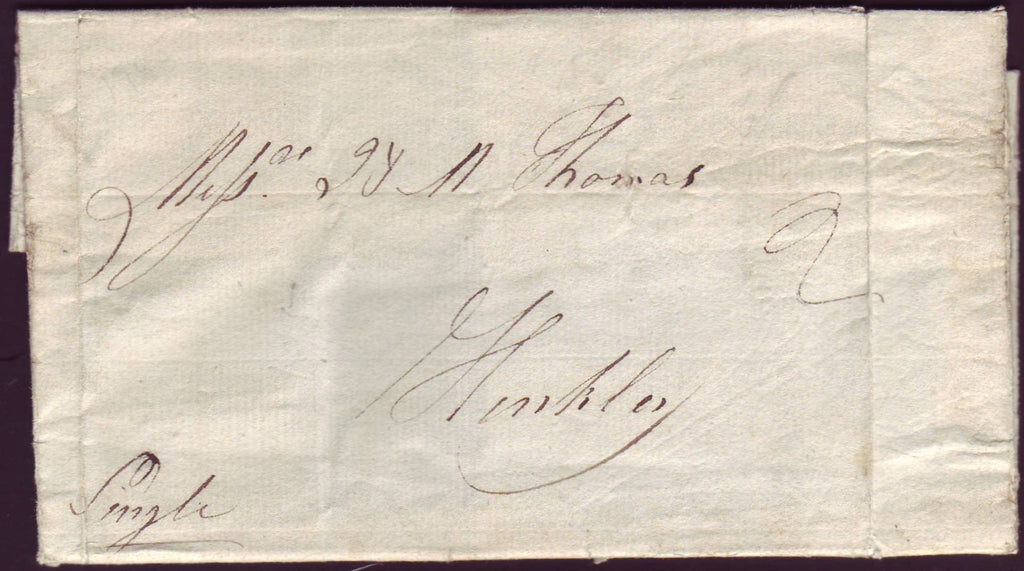 Mess.rs & N Thomas
2
Hinkley
Single